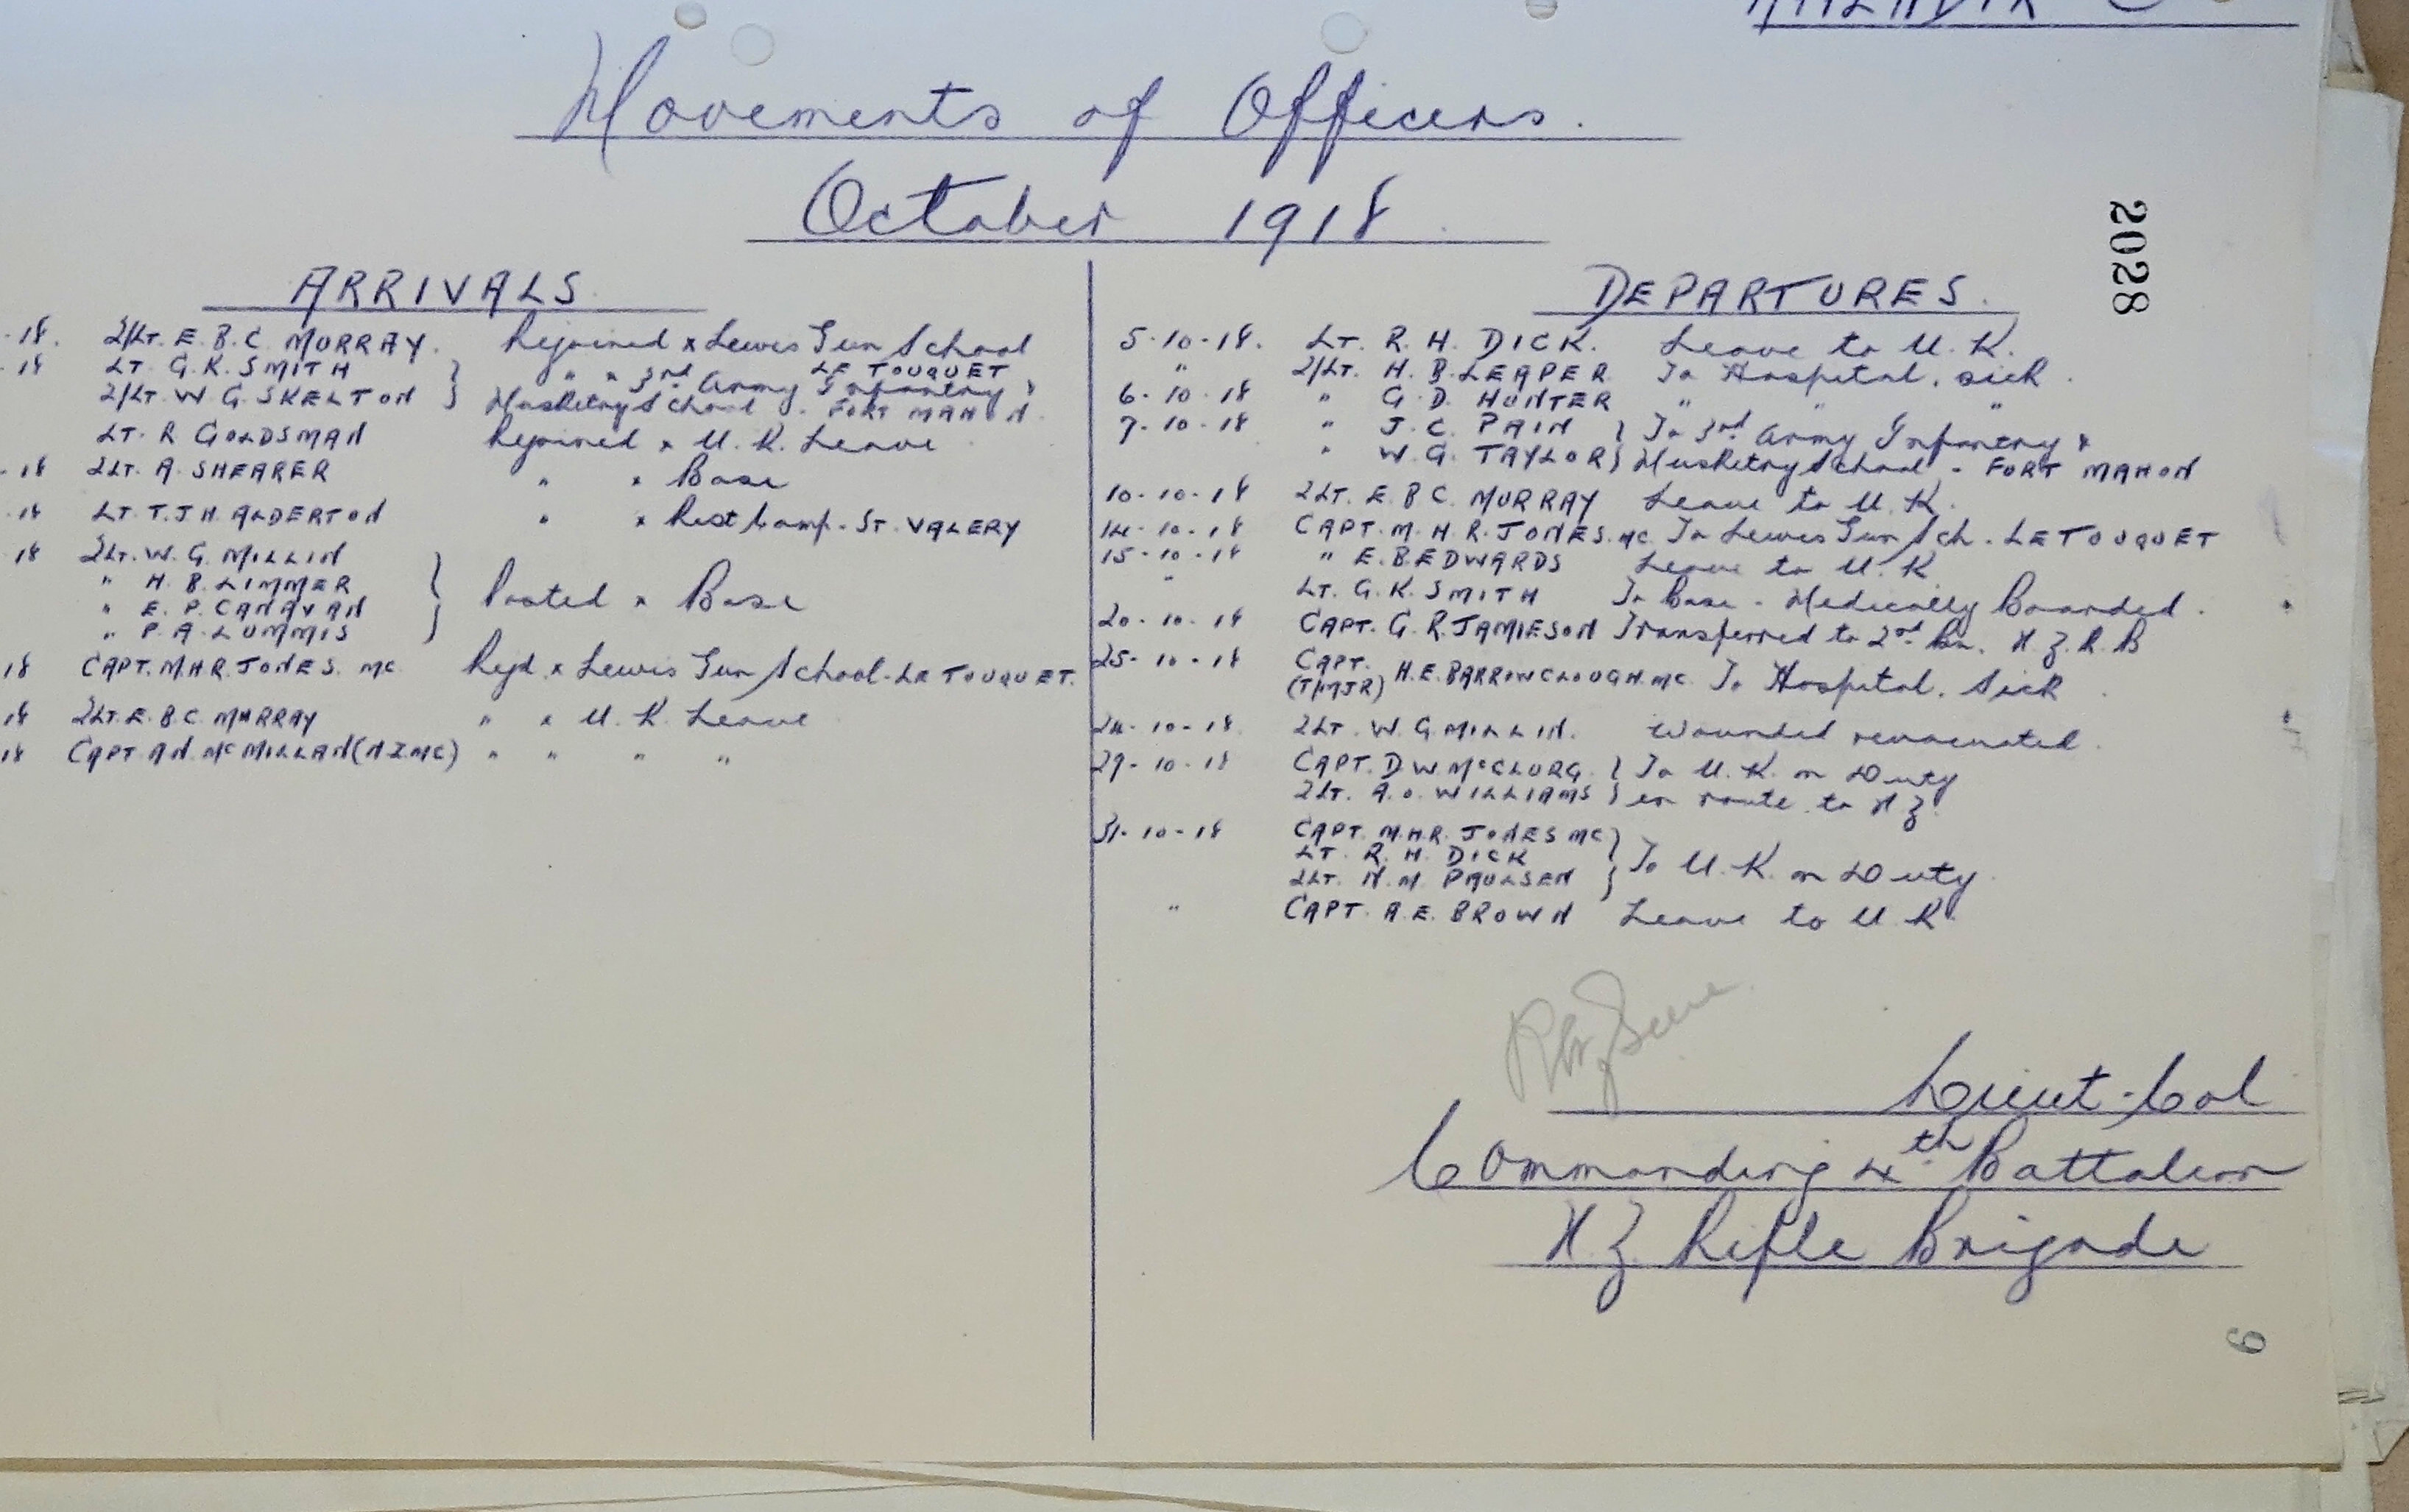 Movements of Officers.
October 1918.
2028
ARRIVALS
-18. 2/LT. E. B. C. MURRAY. Rejoined x Lewis Gun School
LE TOUQUET
-18 LT. G. K. SMITH } " x 3rd Army Infantry &
2/LT. W. G. SKELTON } Musketry School - FORT MAHON.
LT. R GOLDSMAN Rejoined x U. K. Leave
-18 2LT. A. SHEARER " x Base
-18 LT. T. J. H. ALDERTON " x Rest Camp - ST. VALERY
18 2LT. W. G. MILLIN }
" H. B. LIMMER
" E. P. CANAVAN } Posted x Base
" P. A. LUMMIS
18 CAPT. M.H.R. JONES. MC Rejd x Lewis Gun School - LE TOUQUET.
18 2LT. E. B. C. MURRAY " x U. K. Leave
18 CAPT. A.N. McMILLAN (NZMC) " " " "
DEPARTURES.
5-10-18. LT. R. H. DICK. Leave to U. K.
" 2/LT. H. B. LEAPER To Hospital, sick.
6-10-18 " G. D. HUNTER " " "
7-10-18 " J. C. PAIN } To 3rd Army Infantry &
" W. G. TAYLOR } Musketry School - FORT MAHON
10-10-18 2LT. E. B C. MURRAY Leave to U. K.
14-10-18 CAPT. M. H. R. JONES. MC To Lewis Gun Sch. - LE TOUQUET
15-10-18 " E. B. EDWARDS Leave to U. K
" LT. G. K. SMITH To Base - Medically Boarded.
20-10-18 CAPT. G. R. JAMIESON Transferred to 2nd Bn. N. Z. R. B
25-10-18 CAPT. H. E. BARROWCLOUGH. MC To Hospital, Sick
(T/MJR)
24-10-18 2LT. W. G. MILLIN. Wounded & evacuated.
29-10-18 CAPT. D. W. McCLURG. } To U. K. on Duty
2LT. A. O. WILLIAMS } en route to N Z.
31-10-18 CAPT. M.H.R. JONES MC }
LT. R. H. DICK } To U. K. on Duty
2LT. N. M. PAULSEN }
" CAPT. A. E. BROWN Leave to U. K.
Lieut-Col
Commanding 4th Battalion
N. Z. Rifle Brigade
9